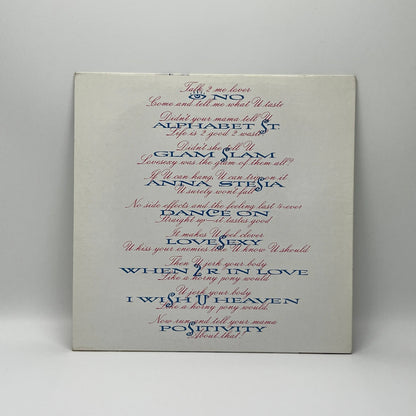 Talk 2 me lover
👁 NO
Come and tell me what U taste
Didn't your mama tell U
ALPHABET St
Life is 2 good 2 waste
Didn't she tell U
GLAM SLAM
Lovesexy was the glam of them all?
If U can hang, U can trip on it
ANNA STESIA
U surely won't fall
No side effects and the feeling last 4-ever
DANCE ON
Straight up—it tastes good
It makes U feel clever
LOVESEXY
U kiss your enemies like U know U should
Then U jerk your body
WHEN 2 R IN LOVE
Like a horny pony would
U jerk your body
I WISH U HEAVEN
Like a horny pony would.
Now run and tell your mama
POSITIVITY
About that!